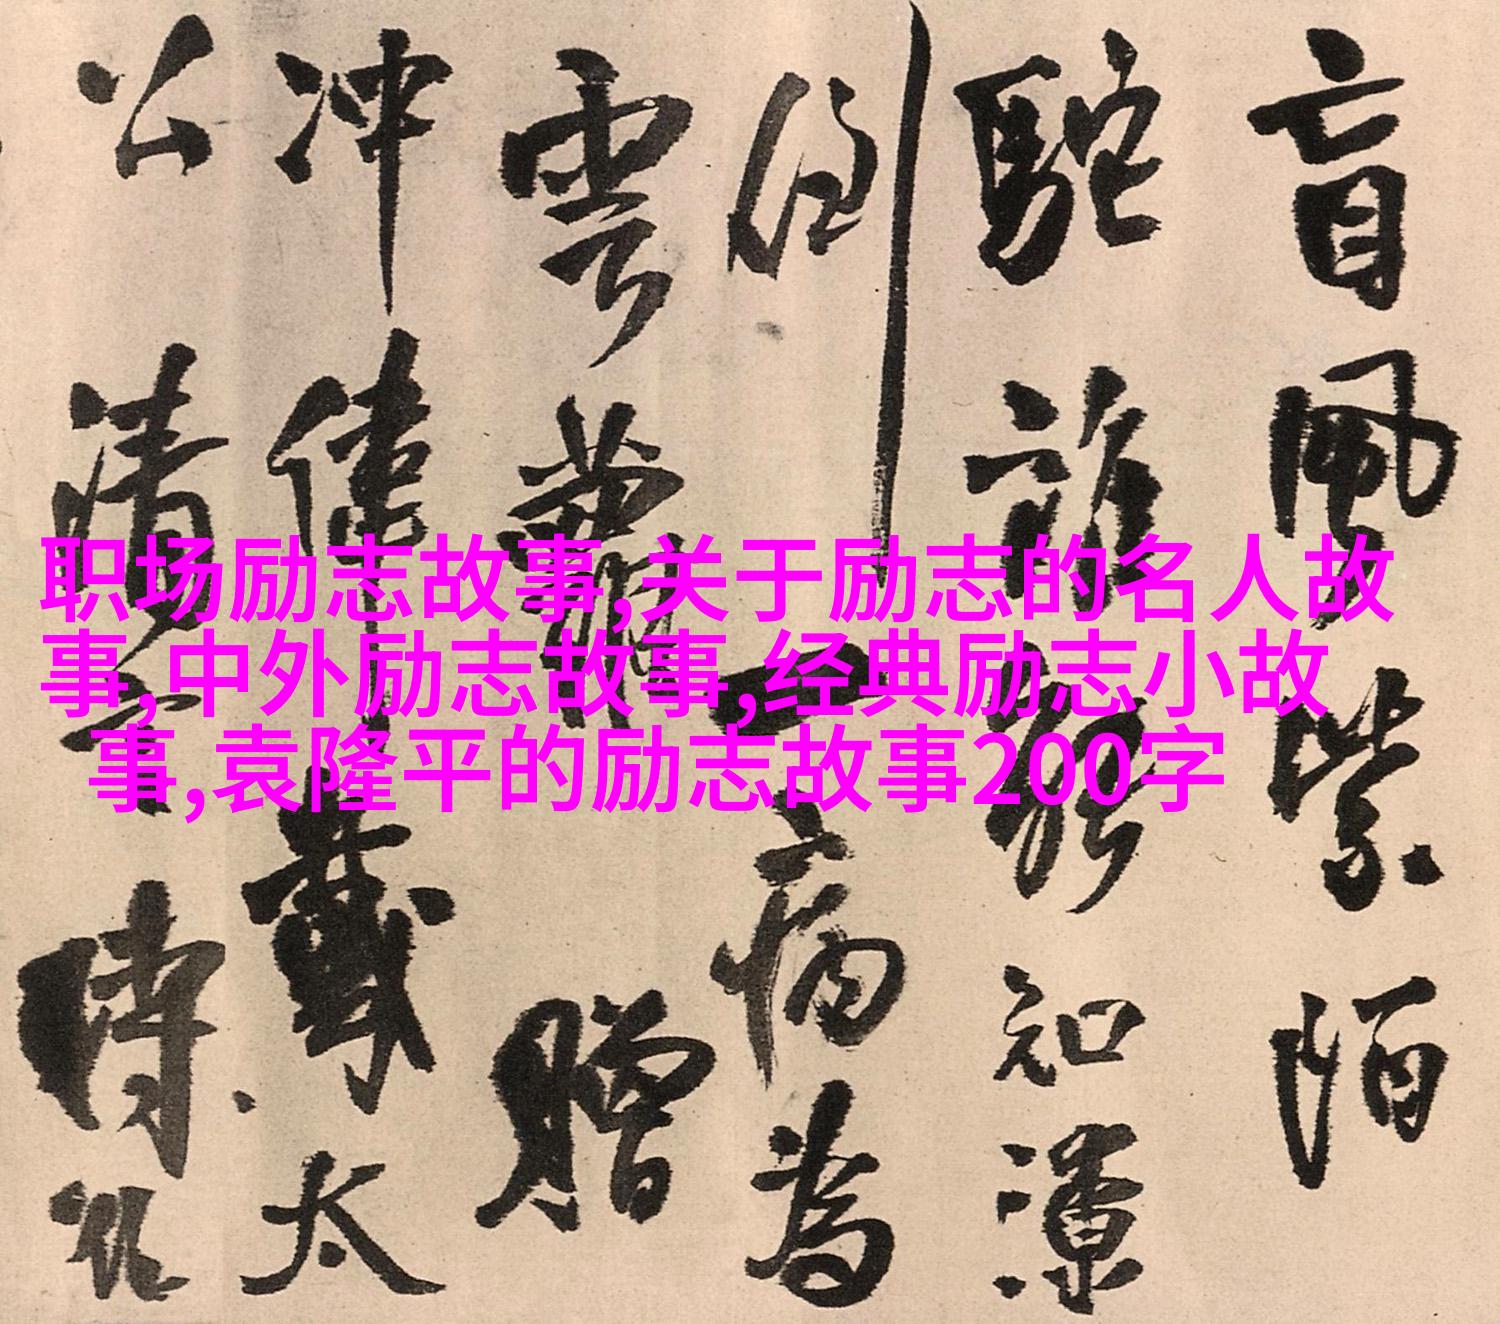 盲風紫陌
駝誰能知
側一病為
雲贈
冲偉戴太
公清時
职场励志故事,关于励志的名人故
事,中外励志故事,经典励志小故
事,袁隆平的励志故事200字